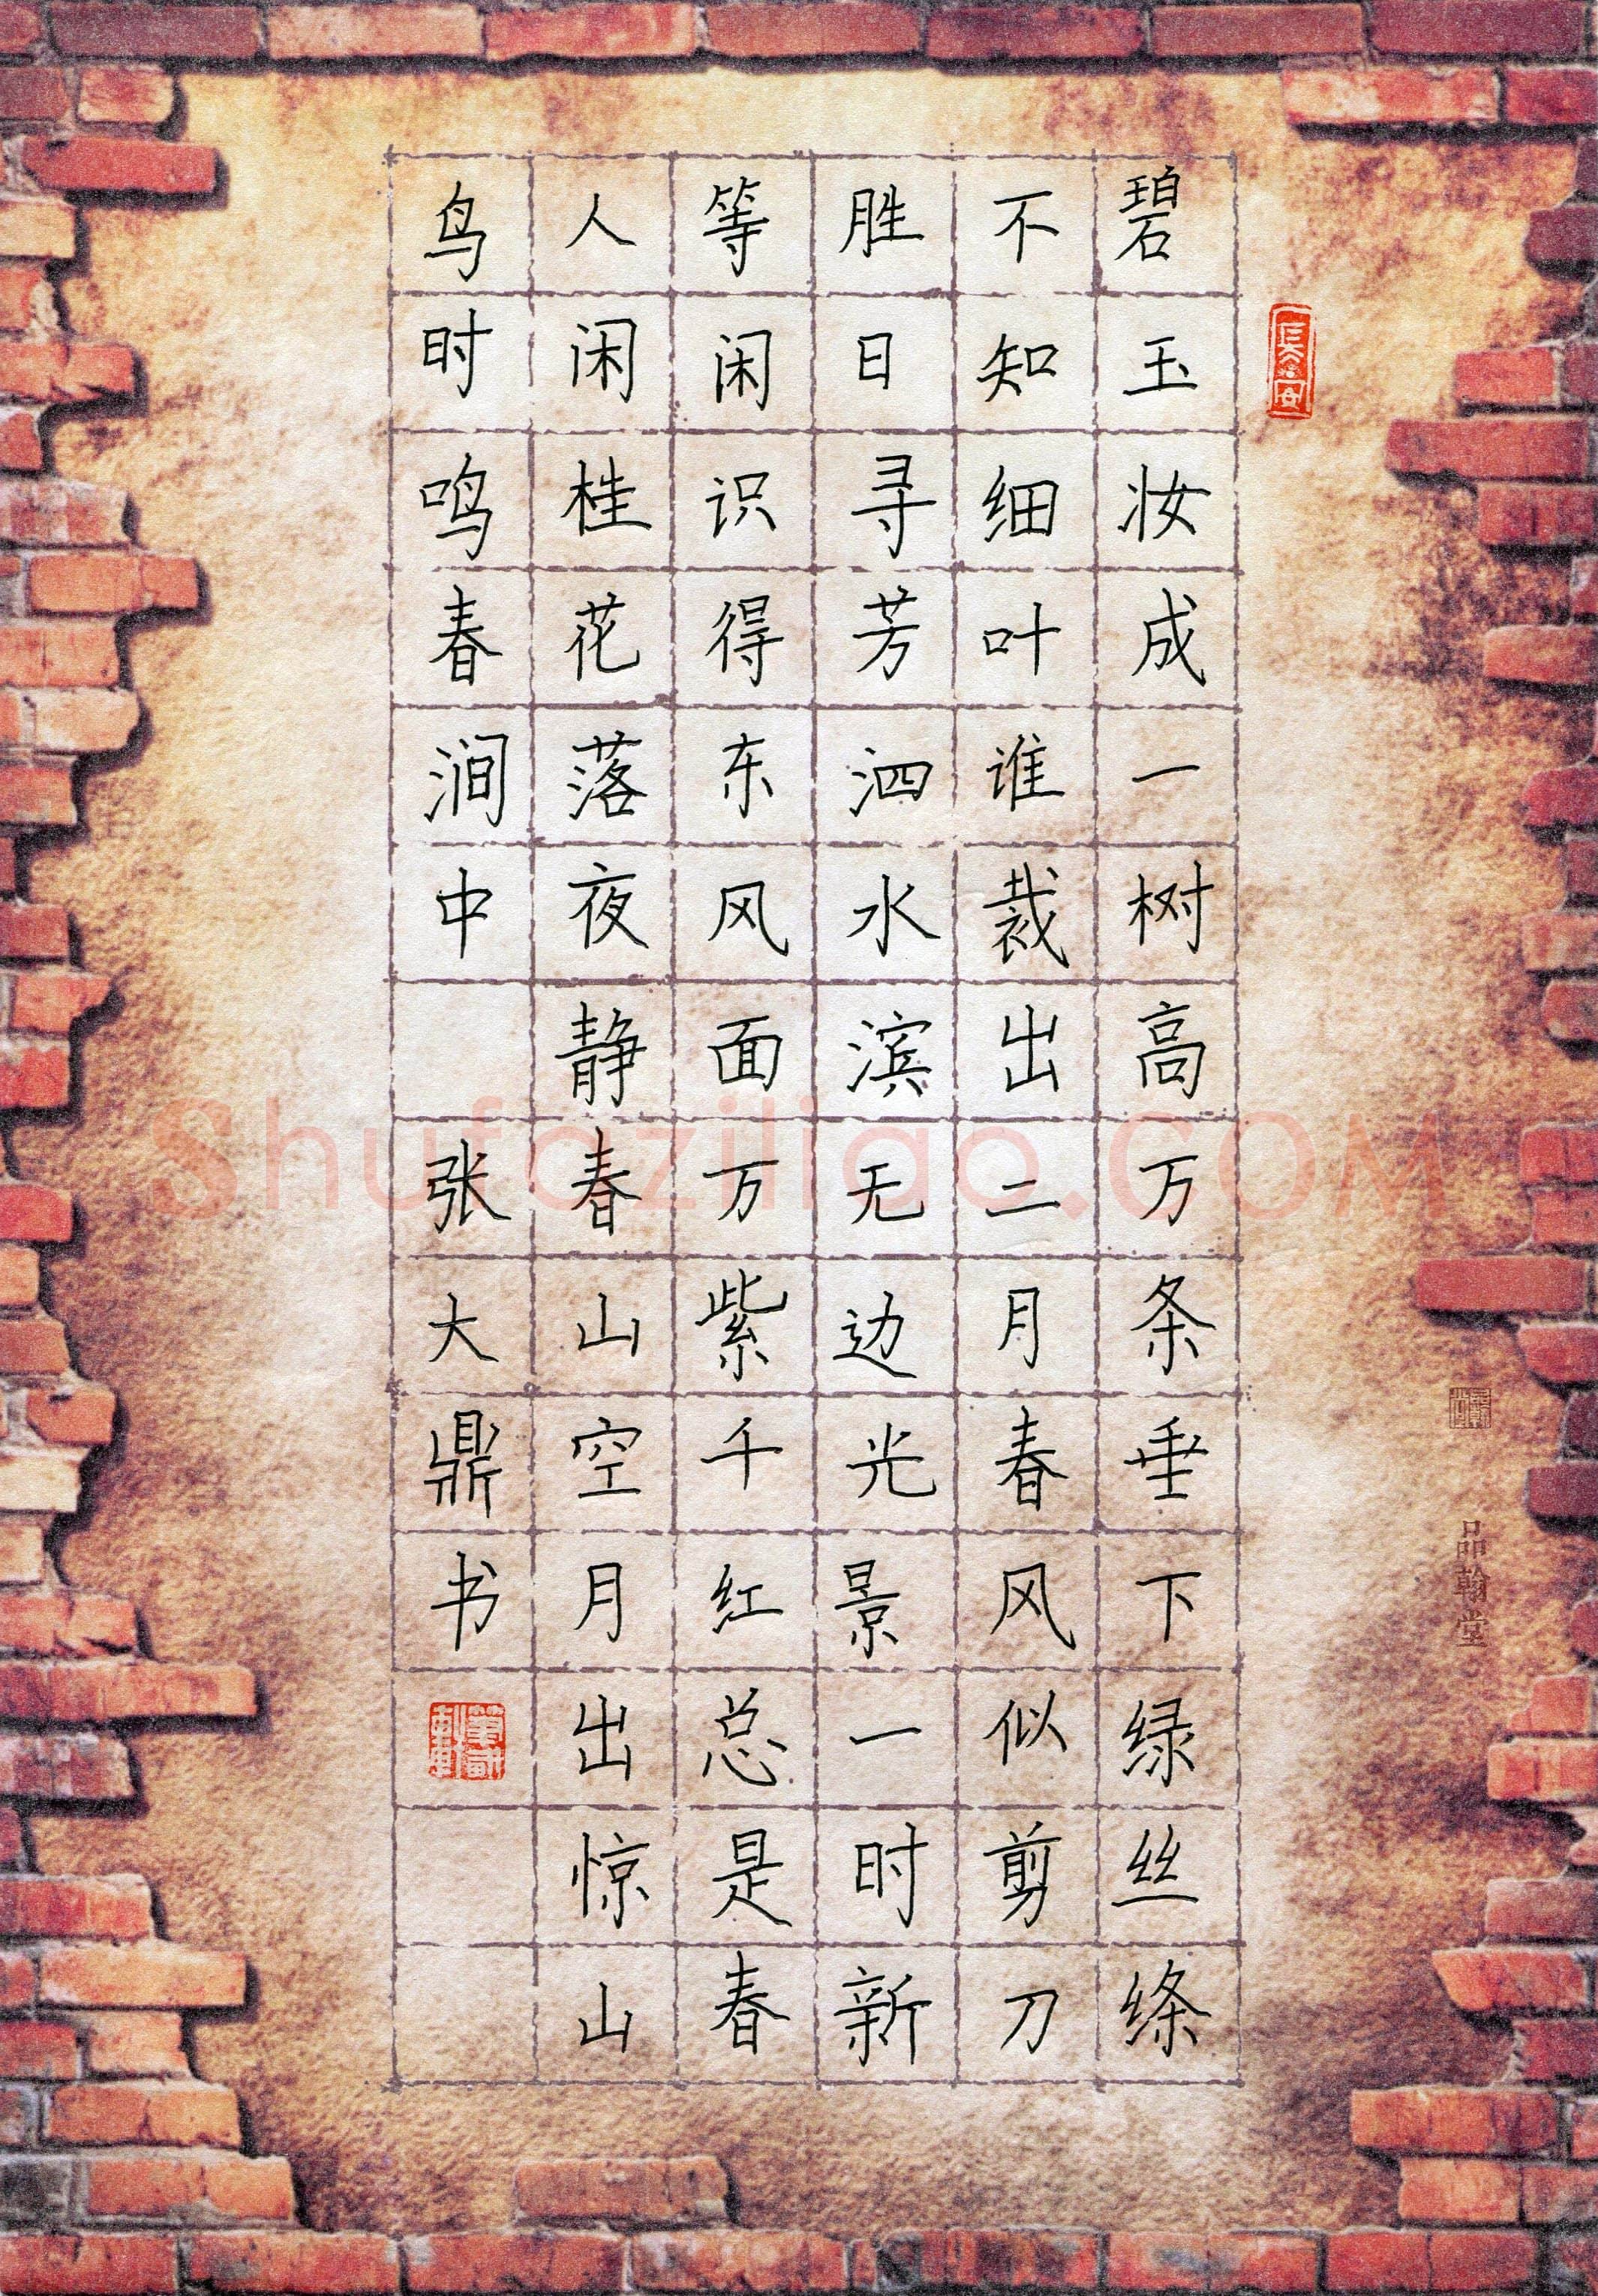 碧玉妆成一树高万条垂下绿丝绦
不知细叶谁裁出二月春风似剪刀
胜日寻芳泗水滨无边光景一时新
等闲识得东风面万紫千红总是春
人闲桂花落夜静春山空月出惊山
鸟时鸣春涧中 张大鼎书
品翰堂
Shufaziliao.COM